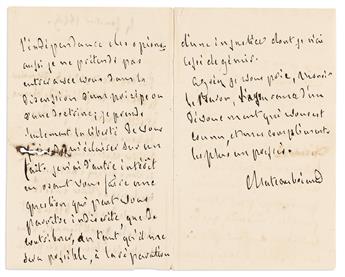 l'indépendance des opinions
aussi je ne prétends pas
entrer avec vous dans la
discussion d'un principe ou
d'une doctrine; je prends
seulement la liberté de vous
sur un
fait. je n'ai d'autre intérêt
en osant vous faire une
question qui peut vous
paroître indiscrète, que de
contribuer, autant qu'il me
sera possible, à la réparation
d'une injustice dont je n'ai
cessé de gémir.
Agréez je vous prie, Monsieur
le Baron, d'un
dévouement qui vous est
connu, et mes compliments
les plus empressés.
Chateaubriand